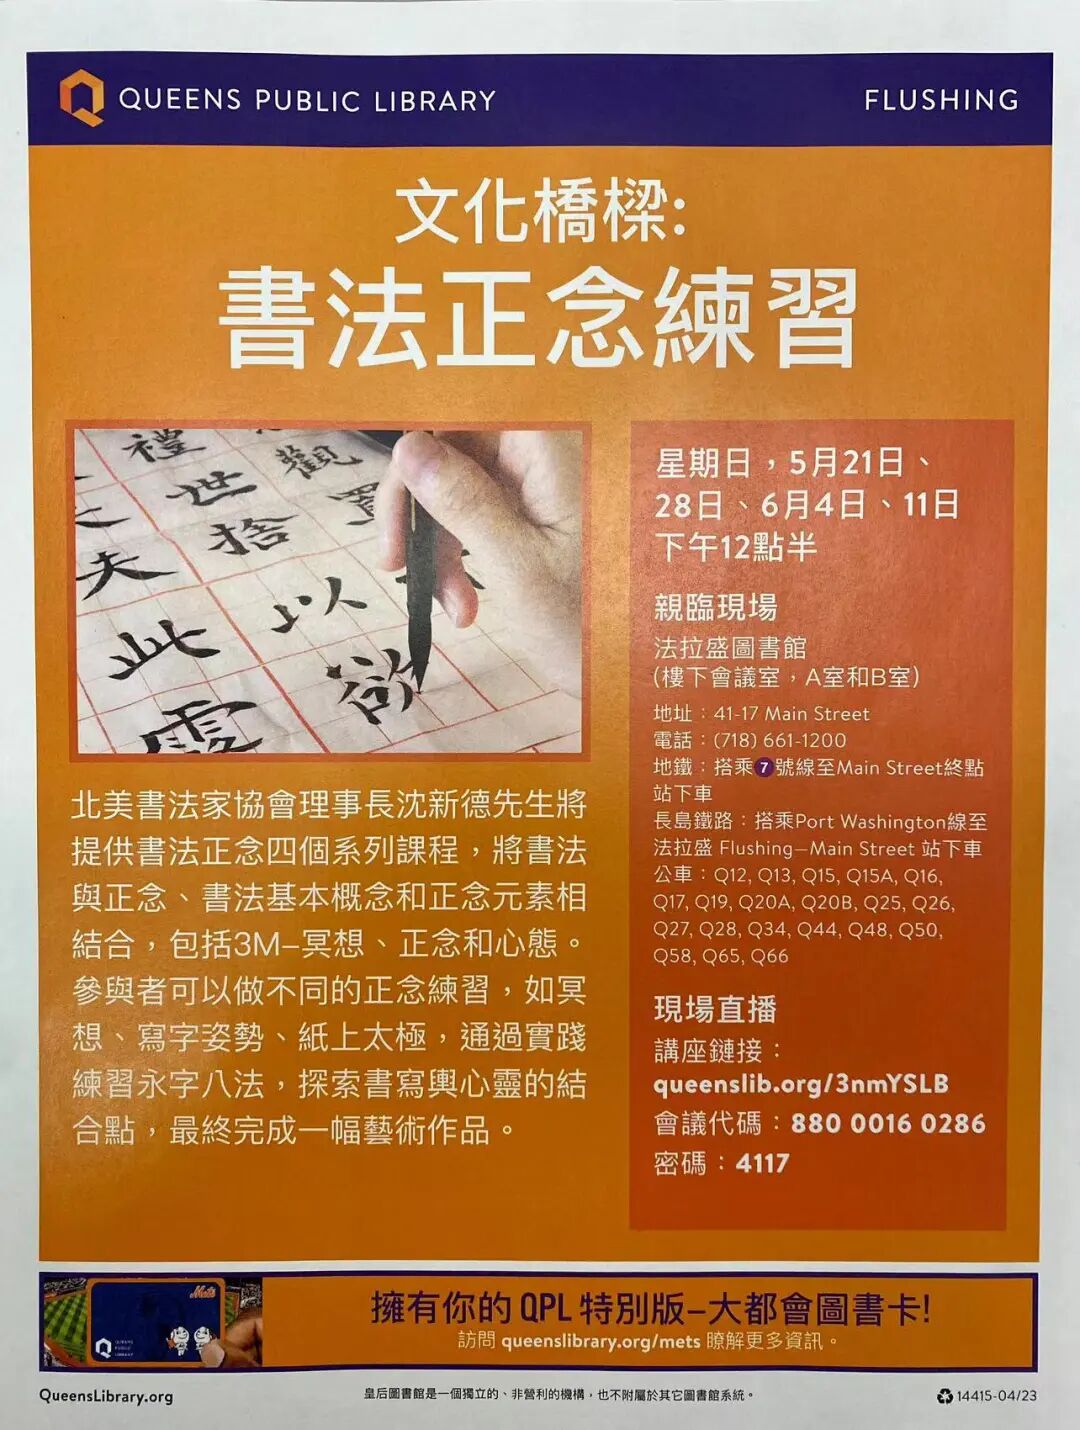 QUEENS PUBLIC LIBRARY
FLUSHING
文化橋樑:
書法正念練習
禮 觀
世 買
捨
夫 以
此 欲
靈
星期日，5月21日、
28日、6月4日、11日
下午12點半
親臨現場
法拉盛圖書館
(樓下會議室，A室和B室)
地址：41-17 Main Street
電話：(718) 661-1200
地鐵：搭乘7號線至Main Street終點
站下車
長島鐵路：搭乘Port Washington線至
法拉盛 Flushing–Main Street 站下車
公車：Q12, Q13, Q15, Q15A, Q16,
Q17, Q19, Q20A, Q20B, Q25, Q26,
Q27, Q28, Q34, Q44, Q48, Q50,
Q58, Q65, Q66
現場直播
講座鏈接：
queenslib.org/3nmYSLB
會議代碼：880 0016 0286
密碼：4117
北美書法家協會理事長沈新德先生將
提供書法正念四個系列課程，將書法
與正念、書法基本概念和正念元素相
結合，包括3M–冥想、正念和心態。
參與者可以做不同的正念練習，如冥
想、寫字姿勢、紙上太極，通過實踐
練習永字八法，探索書寫輿心靈的結
合點，最終完成一幅藝術作品。
Mets
QUEENS
PUBLIC
LIBRARY
擁有你的 QPL 特別版–大都會圖書卡!
訪問 queenslibrary.org/mets 瞭解更多資訊。
QueensLibrary.org
皇后圖書館是一個獨立的、非營利的機構，也不附屬於其它圖書館系統。
14415-04/23